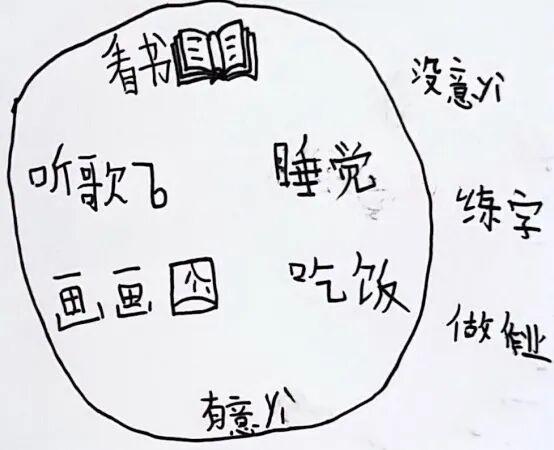 看书
没意yi
听歌
睡觉
练字
画画
吃饭
做作业
有意yi